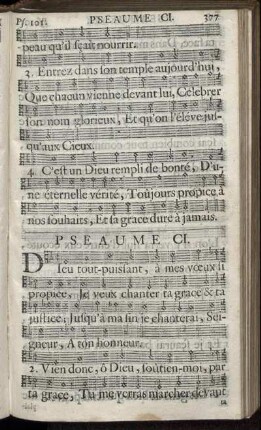 Ps. 101. PSEAUME CI. 377
peau qu'il sçait nourrir.
3. Entrez dans son temple aujourd'hui,
Que chacun vienne devant lui, Célébrer
son nom glorieux, Et qu'on l'éléve jus-
qu'aux Cieux.
4. C'est un Dieu rempli de bonté, D'u-
ne éternelle vérité, Toûjours propice à
nos souhaits, Et sa grace dure à jamais.
PSEAUME CI.
Dieu tout-puissant, à mes vœux si
propice, Je veux chanter ta grace & ta
justice; Jusqu'à ma fin je chanterai, Sei-
gneur, A ton honneur.
2. Vien donc, ô Dieu, soûtien-moi, par
ta grace, Tu me verras marcher devant